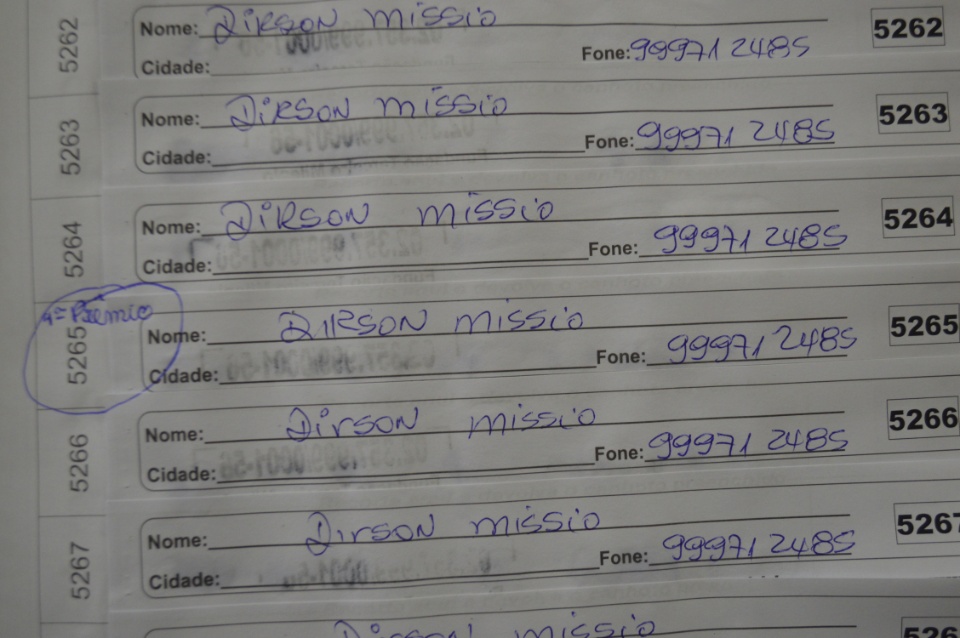 5262 Nome: Dirson missio 5262
Cidade: Fone: 99971 2485
5263 Nome: Dirson missio 5263
Cidade: Fone: 99971 2485
5264 Nome: Dirson missio 5264
Cidade: Fone: 99971 2485
4º Premio
5265 Nome: Dirson missio 5265
Cidade: Fone: 99971 2485
5266 Nome: Dirson missio 5266
Cidade: Fone: 99971 2485
5267 Nome: Dirson missio 5267
Cidade: Fone: 99971 2485
Dirson missio